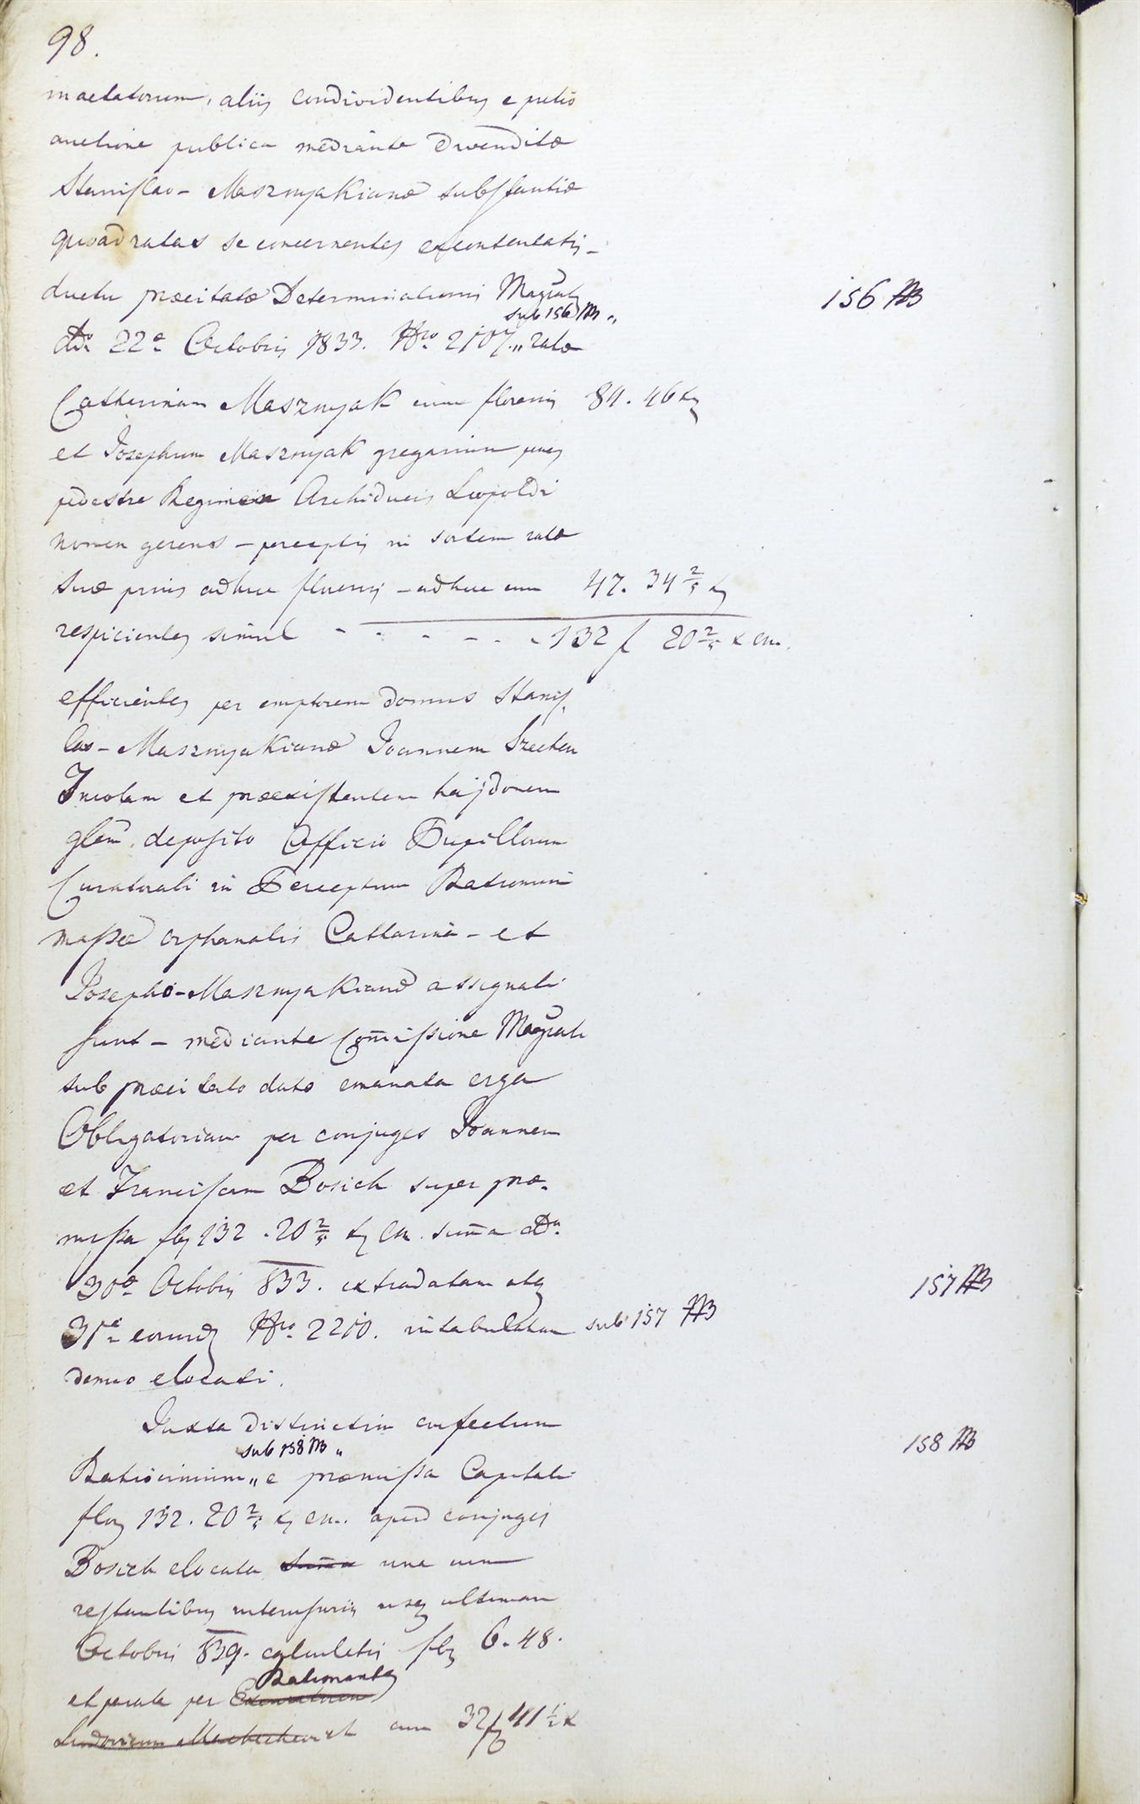 98.
mactatorum, aliis condividentibus e pretio
auctione publica mediante divenditae
Stanislao-Masznyakianae substantiae
quoad ratas se concernentes excontentatis-
ductu praecitatae Determinationis Magratus
sub 156 NB „
156 NB
dto 22a Octobris 1833. Nro 2107. „ ratae
Catharinam Masznyak cum florenis 84. 46 xr
et Josephum Masznyak gregarium penes
pedestre Regimen Archiducis Leopoldi
nomen gerens - perceptis in sortem ratae
suae prius adhuc florenis - adhuc cum 47. 34 2/5 xr
respicientes simul - - - - - - 132 f 20 2/5 x cm.
efficientes per emptorem domus Stanis-
lao-Masznyakianae Joannem Szecken
Incolam et praeexistentem hajdonem
glem. deposito Officio Pupillorum
Curatorali in Perceptum Rationum
massae orphanalis Catharina- et
Josepho-Masznyakianae assignati
sunt - mediante Comissione Magratus
sub praecitato dato emanata erga
Obligatoriam per conjuges Joannem
et Franciscam Bosich super prae-
missa flr 132 . 20 2/5 xr cm. suma dto
30a Octobris 833. extradatam atq
157 NB
31a eorund Nro 2210. intabulatam sub 157 NB
denuo elocati.
Juxta distinctim confectum
sub 158 NB „
158 NB
Ratiocinium „ e praemissa Capitali
flor 132. 20 2/5 xr cm. apud conjuges
Bosich elocata suma una cum
restantibus interusuriis usq ultimam
Octobris 839. calculatis flr 6. 48.
Rationantes
et per per Exonratorem
Ludovicum cum 32 f 41 1/2 x